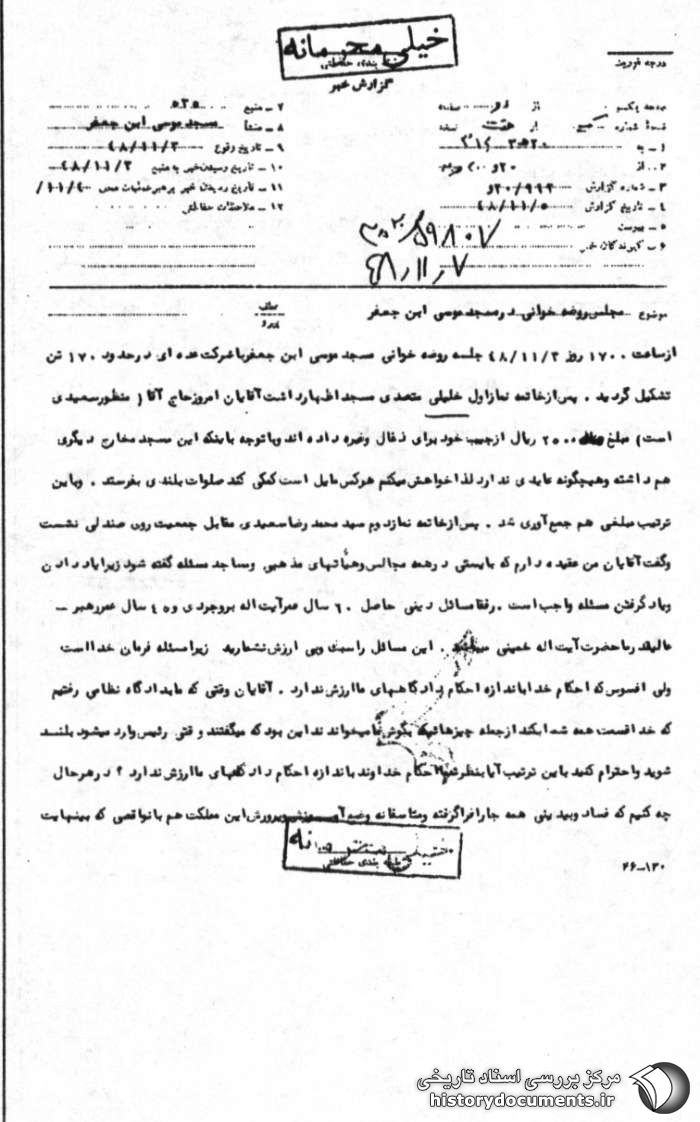 خیلی محرمانه
طبقه بندی حفاظتی
گزارش خبر
درجه فوریت
۱ - به ۳۰۵۲۰
۲ - از
۳ - شماره گزارش
۴ - تاریخ گزارش ۴۸/۱۱/۵
۵ - پیوست
۶ - گیرندگان خبر
۷ - منبع
۸ - منشأ مسجد موسی ابن جعفر
۹ - تاریخ وقوع ۴۸/۱۱/۲
۱۰ - تاریخ رسیدن خبر به منبع ۴۸/۱۱/۲
۱۱ - تاریخ رسیدن خبر برهبر عملیات
۱۲ - ملاحظات حفاظتی
۴۸/۱۱/۷
موضوع مجلس روضه خوانی در مسجد موسی ابن جعفر
از ساعت ۱۷۰۰ روز ۴۸/۱۱/۲ جلسه روضه خوانی مسجد موسی ابن جعفر با شرکت عده ای در حدود ۱۷۰ تن
تشکیل گردید . پس از خاتمه نماز اول خلیلی متصدی مسجد اظهار داشت آقایان امروز حاج آقا ( منظور سعیدی
است ) مبلغ ۲۵۰۰ ریال از جیب خود برای ذغال وغیره داده اند وبا توجه باینکه این مسجد مخارج دیگری
هم داشته وهیچگونه عایدی ندارد لذا خواهش میکنم هرکس مایل است کمکی کند صلوات بلندی بفرستد . وباین
ترتیب مبلغی هم جمع آوری شد . پس از خاتمه نماز دوم سید محمد رضا سعیدی مقابل جمعیت روی صندلی نشست
وگفت آقایان من عقیده دارم که بایستی در همه مجالس وهیأتهای مذهبی ومساجد مسئله گفته شود زیرا یاد دادن
ویاد گرفتن مسئله واجب است . رفقا مسائل دینی حاصل ۶۰ سال عمر آیت اله بروجردی و ۴۵ سال عمر رهبر -
عالیقدر ما حضرت آیت اله خمینی میباشد . این مسائل را سبک وبی ارزش نشمارید زیرا مسئله فرمان خدا است
ولی افسوس که احکام خدا باندازه احکام دادگاههای ما ارزش ندارد . آقایان وقتی که ما بدادگاه نظامی رفتیم
که خدا قسمت همه شما بکند از جمله چیزهائیکه بگوش ما میخواندند این بود که میگفتند وقتی رئیس وارد میشود بلند
شوید واحترام کنید باین ترتیب آیا بنظر شما احکام خداوند باندازه احکام دادگاههای ما ارزش ندارد ؟ در هر حال
چه کنیم که فساد وبیدینی همه جا را فرا گرفته ومتأسفانه وضع آموزش وپرورش این مملکت هم با نواقصی که بینهایت
طبقه بندی حفاظتی
۴۶-۱۳۰
مرکز بررسی اسناد تاریخی
historydocuments.ir